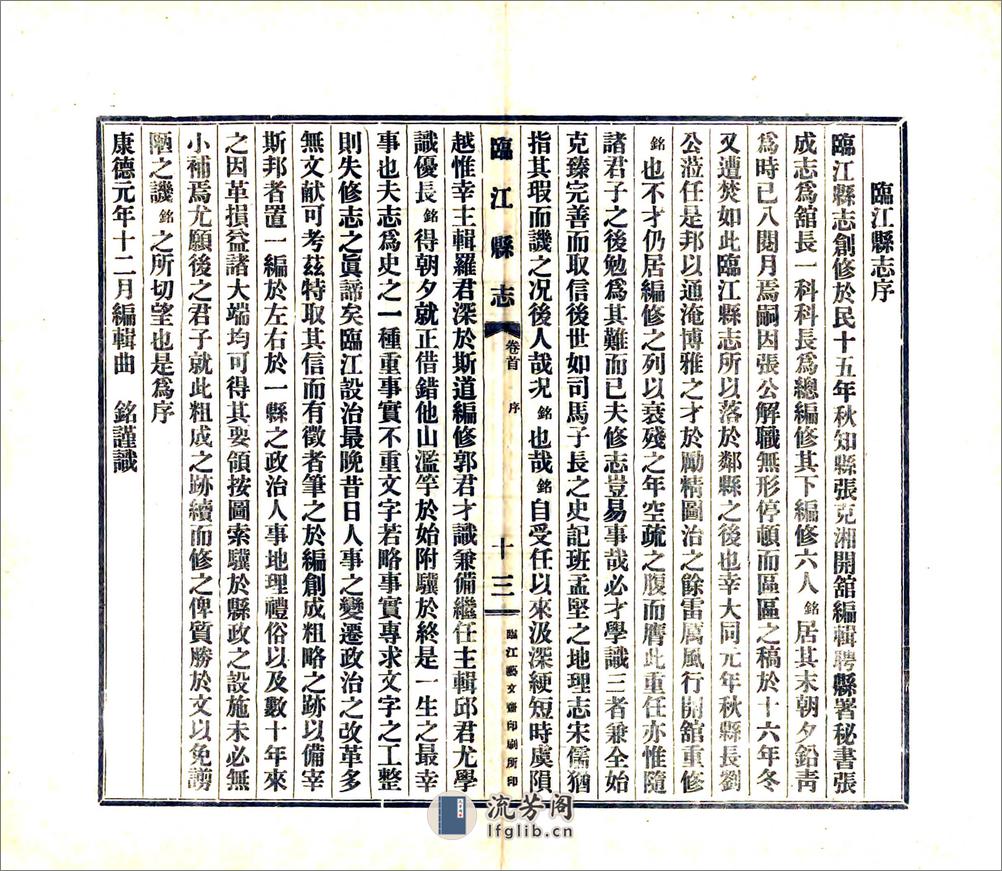 臨江縣志序
臨江縣志創修於民十五年秋知縣張克湘開舘編輯聘縣署秘書張
成志爲舘長一科科長爲總編修其下編修六人銘居其末朝夕鉛靑
爲時已八閱月焉嗣因張公解職無形停頓而區區之稿於十六年冬
又遭焚如此臨江縣志所以落於鄰縣之後也幸大同元年秋縣長劉
公蒞任是邦以通淹博雅之才於勵精圖治之餘雷厲風行開舘重修
銘也不才仍居編修之列以衰殘之年空疏之腹而膺此重任亦惟隨
諸君子之後勉爲其難而已夫修志豈易事哉必才學識三者兼全始
克臻完善而取信後世如司馬子長之史記班孟堅之地理志宋儒猶
指其瑕而譏之况後人哉况銘也哉銘自受任以來汲深綆短時虞隕
臨江縣志
卷首
序
十三
臨江藝文齋印刷所印
越惟幸主輯羅君深於斯道編修郭君才識兼備繼任主輯邱君尤學
識優長銘得朝夕就正借錯他山濫竽於始附驥於終是一生之最幸
事也夫志爲史之一種重事實不重文字若略事實專求文字之工整
則失修志之眞諦矣臨江設治最晚昔日人事之變遷政治之改革多
無文献可考茲特取其信而有徵者筆之於編創成粗略之跡以備宰
斯邦者置一編於左右於一縣之政治人事地理禮俗以及數十年來
之因革損益諸大端均可得其要領按圖索驥於縣政之設施未必無
小補焉尤願後之君子就此粗成之跡續而修之俾質勝於文以免謗
陋之譏銘之所切望也是爲序
康德元年十二月編輯曲 銘謹識
流芳阁
lfglib.cn